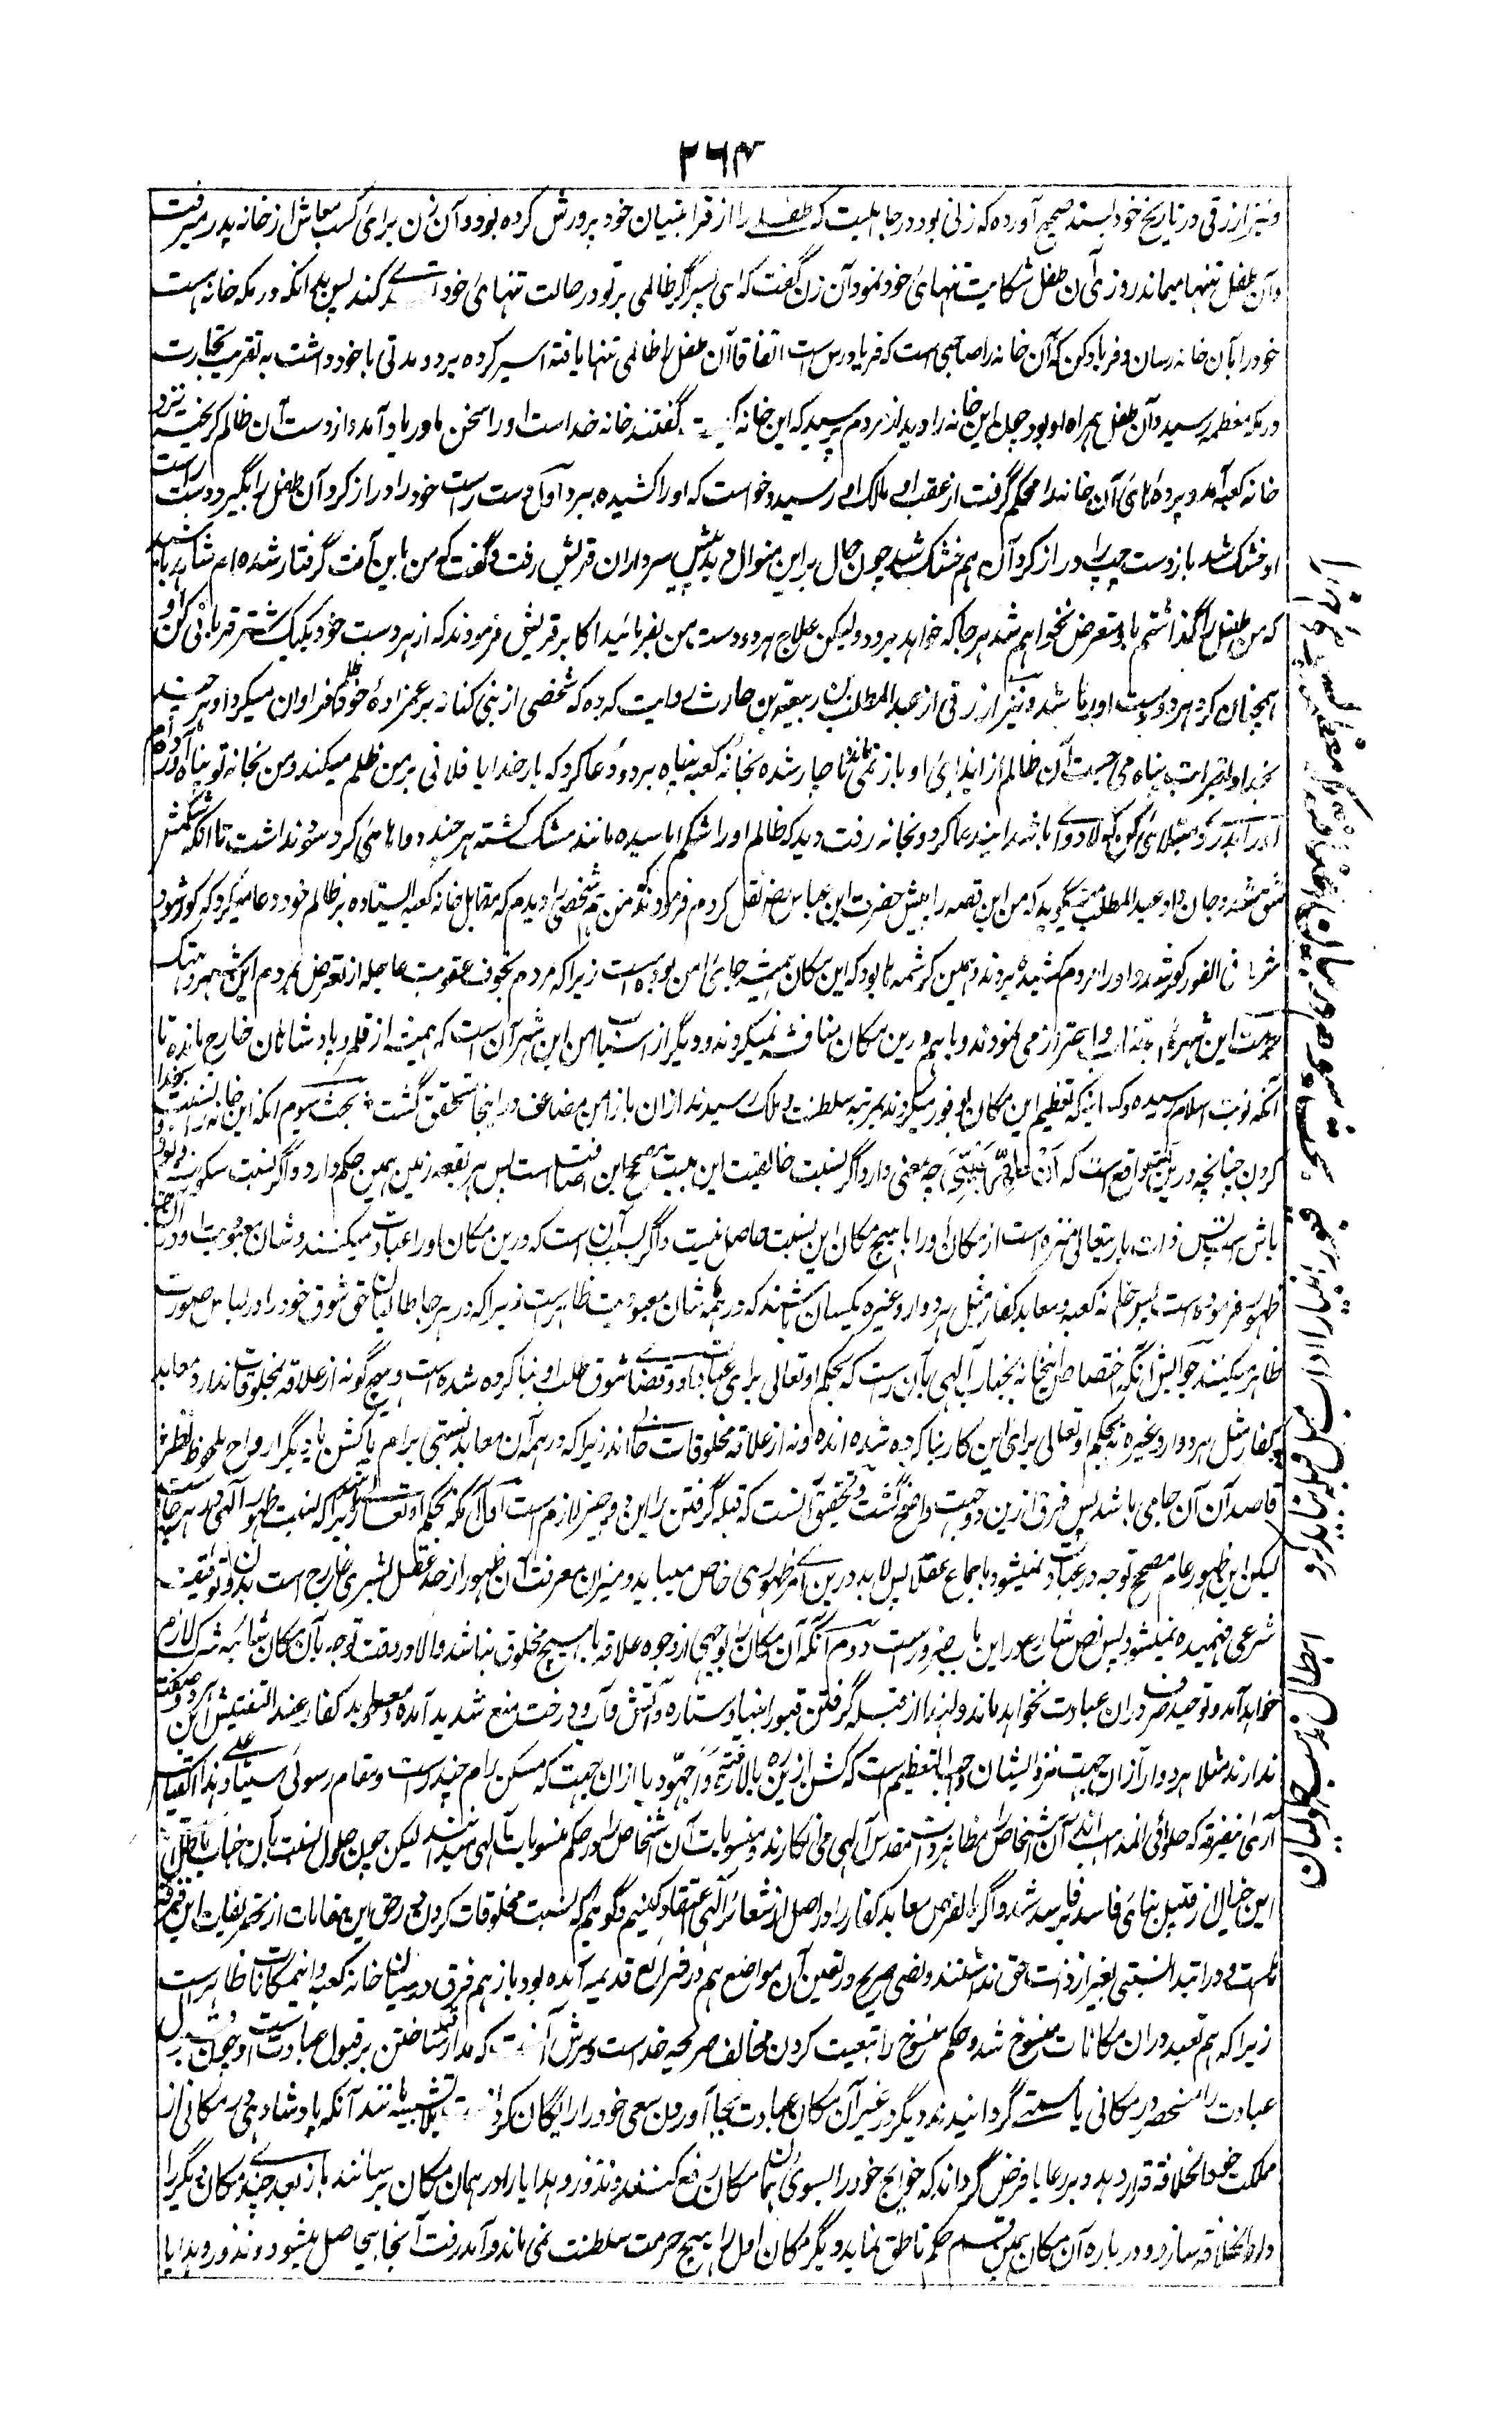 ۳۶۴
ونیز ازرقی در تاریخ خود بسند صحیح آورده که زنی بود در جاهلیت که طفلے را از قرابتیان خود پرورش کرده بود و آن زن برای کسب معاش از خانه بدر میرفت
و آن طفل تنها میماند روزی آن طفل شکایت تنهائی خود نمود آن زن گفت که ای پسر اگر ظالمی بر تو در حالت تنهائی خود کند پس بدانکه در مکه خانه است
خود را بآن خانه رسان و فریاد کن که آن خانه را صاحبی است که فریادرس است اتفاقا آن طفل را ظالمی تنها یافته اسیر کرده برد و مدتی با خود داشت به تقریب تجارت
در مکه معظمه رسید و آن طفل همراه او بود چون این خانه را دید از مردم پرسید که این خانه کیست گفتند خانه خداست او را سخن مادر یاد آمد و از دست آن ظالم گریخته نزد
خانه کعبه آمد و پرده های آن خانه را محکم گرفت از عقب او مالک او رسید و خواست که او را کشیده ببرد اول دست راست خود را دراز کرد آن طفل را بگیرد دست راست
او خشک شد باز دست چپ را دراز کرد آن هم خشک شد چون حال بر این منوال دید پیش سرداران قریش رفت و گفت که من باین آفت گرفتار شده ام شاهد باشید
که من طفل را گذاشتم باو متعرض نخواهم شد هر جا که خواهد برود ولیکن علاج هر دو دست من بفرمائید اکابر قریش فرمودند که از هر دست خود یک یک شتر قربانی کن او
همچنان کرد هر دو دست او رها شد و نیز ازرقی از عبدالمطلب بن ربیعة بن حارث روایت کرده که شخصی از بنی کنانه بر عمزاده خود ظلم فراوان میکرد او هر چند
بخدا و بقرابت پناه می جست آن ظالم از ایذای او باز نمی ماند ناچار شده بخانه کعبه پناه برد و دعا کرد که بار خدایا فلانی بر من ظلم میکند و من بخانه تو پناه آورده ام
او را بدردی مبتلا کن که او را دوا نباشد اینقدر دعا کرد و بخانه رفت دید که ظالم او را شکم آماسیده مانند مشک گشته هر چند دواها می کرد سود نداشت تا آنکه شکمش
شق شد و جان داد عبدالمطلب میگوید که من این قصه را پیش حضرت ابن عباس رضـ نقل کردم فرمودند که من هم شخصی را دیدم که مقابل خانه کعبه ایستاده بر ظالم خود دعا میکرد که کور شود
فی الفور کور شد و او را مردم کشیده بردند و بهمین کرشمه ها بود که این مکان همیشه جای امن بوده است زیرا که مردم بخوف عقوبت عاجله از تعرض مردم این شهر و هتک
حرمت این شهر احتراز می نمودند و باهم درین مکان مناقشه نمیکردند و دیگر از اسباب امن این شهر آن است که همیشه از قلمرو بادشاهان خارج مانده تا
آنکه نوبت اسلام رسیده و کسانیکه تعظیم این مکان بوفور میکردند بمرتبه سلطنت و ملک رسیدند ازان باز امن مضاعف در اینجا متحقق گشت * بحث سیوم آنکه این خانه را نسبت بخدا
کردن چنانچه درین آیت واقع است که اَنْ طَهِّرَا بَیْتِیَ چه معنی دارد اگر نسبت خالقیت این بیت مصحح این اضافت است پس هر بقعه زمین همین حکم دارد و اگر نسبت سکونت و بود
باش است پس ذات باریتعالی منزه است از مکان او را با هیچ مکان این نسبت حاصل نیست و اگر بسبب آن است که درین مکان او را عبادت میکنند و شان معبودیت او در آن جا
ظهور فرموده است پس خانه کعبه و معابد کفار مثل هردوار و غیره یکسان باشند که در همه شان معبودیت ظاهر است زیرا که در هر جا طالبان حق شوق خود را در لباس صورت
ظاهر میکنند جوابش آنکه اختصاص اینخانه بجناب الهی بآن است که بحکم او تعالی برای عبادت او و قضای شوق طلب او بنا کرده شده است و هیچ گونه از علاقه مخلوقات ندارد و معابد
کفار مثل هردوار و غیره نه بحکم او تعالی برای این کار بنا کرده شده اند و نه از علاقه مخلوقات خالی اند زیرا که در همه آن معابد نسبتی برام یا کشن یا دیگر ارواح ملحوظ نظر
قاصد آن آن جا می باشد پس فرق ازین دو جهت واضح گشت و تحقیق آنست که قبله گرفتن را این دو چیز لازم است اول آنکه بحکم او تعالی باشد زیرا که نسبت ظهور الهی در هر جا است
لیکن این ظهور عام مصحح توجه در عبادت نمیشود باجماع عقلا پس لابد درین امر ظهوری خاص میباید و میزان معرفت آن ظهور از حد عقل بشری خارج است بدون توقیف
شرعی فهمیده نمیشود پس نص شارع در این باب ضرور است دوم آنکه آن مکان را بوجهی از وجوه علاقه با هیچ مخلوق نباشد والا در وقت توجه بآن مکان شائبه شرک لازم
خواهد آمد و توحید صرف در ان عبادت نخواهد ماند و لهذا از قبله گرفتن قبور انبیا و ستاره و آتش و آب و درخت منع شدید آمده و معابد کفار عند التفتیش این هر دو صفت
ندارند مثلا هردوار از ان جهت نزد ایشان واجب التعظیم است که کشن ازین راه بالا رفته و اجهودیا از ان جهت که مسکن رام چندر است و مقام رسوئی سیتا و علی هذا القیاس
آری متفرقه که حلولی اند آن اشخاص را مظاهر ذات مقدس الهی می انگارند و منسوبات آن اشخاص را در حکم منسوبات الهی میدانند لیکن چون حلول نسبت بآن جناب باطل است
این خیال از قبیل بنای فاسد علی الفاسد شد و اگر بالفرض معابد کفار را در اصل از شعائر الهی اعتقاد کنیم و گوئیم که نسبت مخلوقات کردن در حق این مقامات از تحریفات این فرقه
است و در ابتدا نسبتی بغیر از ذات حق نداشتند و نصی صریح در تعین آن مواضع هم در شرایع قدیمه آمده بود باز هم فرق درمیان خانه کعبه و اینمکانات ظاهر است
زیرا که هم تعبد در ان مکانات منسوخ شد و حکم منسوخ را تبعیت کردن مخالف صریحه خداست و سرش آنست که مدار ساختن بر قبول عبادت است و چون قبول
عبادت را منحصر در مکانی یا سمتے گردانیدند دیگر در غیر آن مکان عبادت بجا آوردن سعی خود را رایگان کردن است بلا تشبیه مانند آنکه پادشاهی در مکانی از
مملکت خود دار الخلافه قرار دهد و بر رعایا فرض گرداند که حوایج خود را بسوی همان مکان رفع کنند و نذور و هدایا را در همان مکان برسانند باز بعد چندے مکان دیگر را
دار الخلافه سازد و در باره آن مکان بهمین قسم حکم ناطق نماید دیگر مکان اول را هیچ حرمت سلطنت نمی ماند و آمد رفت آنجا بیحاصل میشود و نذور و هدایا
ابطال مذهب حلولیان